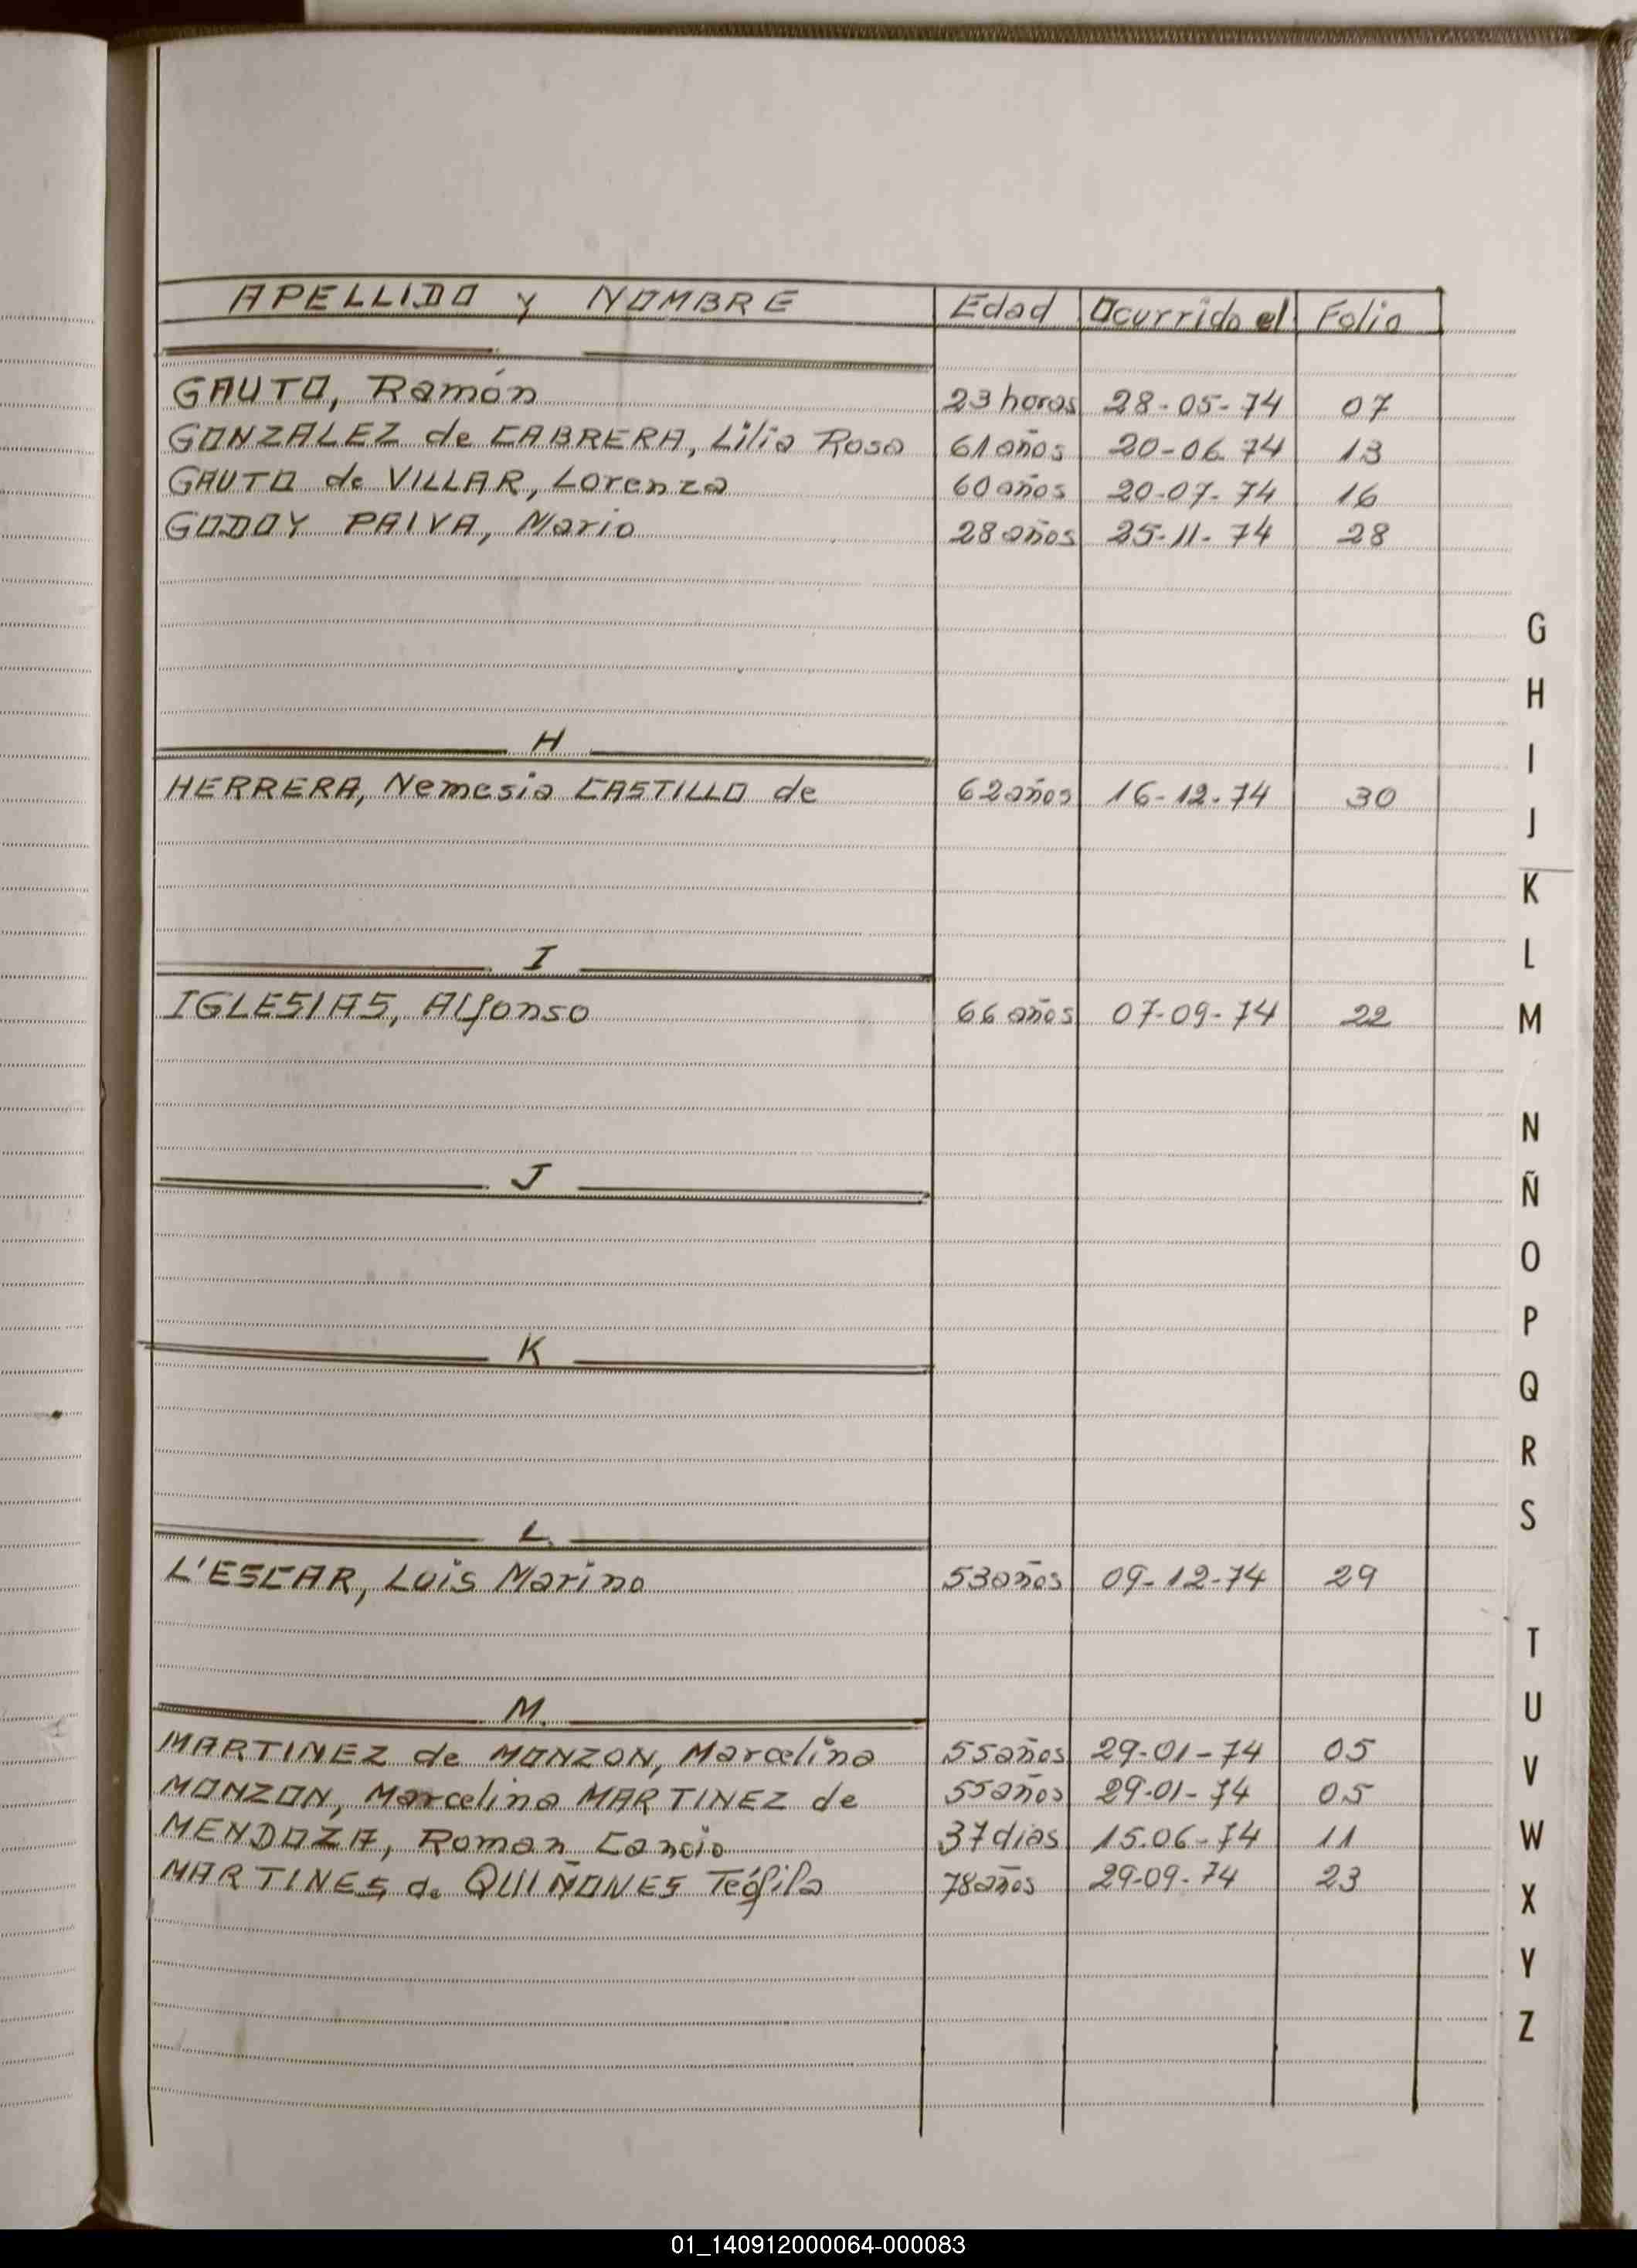 APELLIDO y NOMBRE Edad Ocurrido el Folio
GAUTO, Ramón 23 horas 28-05-74 07
GONZALEZ de CABRERA, Lilia Rosa 61 años 20-06-74 13
GAUTO de VILLAR, Lorenza 60 años 20-07-74 16
GODOY PAIVA, Mario 28 años 25-11-74 28
H
HERRERA, Nemesia CASTILLO de 62 años 16-12-74 30
I
IGLESIAS, Alfonso 66 años 07-09-74 22
J
K
L
L'ESCAR, Luis Marino 53 años 09-12-74 29
M
MARTINEZ de MONZON, Marcelina 55 años 29-01-74 05
MONZON, Marcelina MARTINEZ de 55 años 29-01-74 05
MENDOZA, Roman Cancio 37 dias 15.06-74 11
MARTINES de QUIÑONES Teófila 78 años 29-09-74 23
G
H
I
J
K
L
M
N
Ñ
O
P
Q
R
S
T
U
V
W
X
Y
Z
01_140912000064-000083